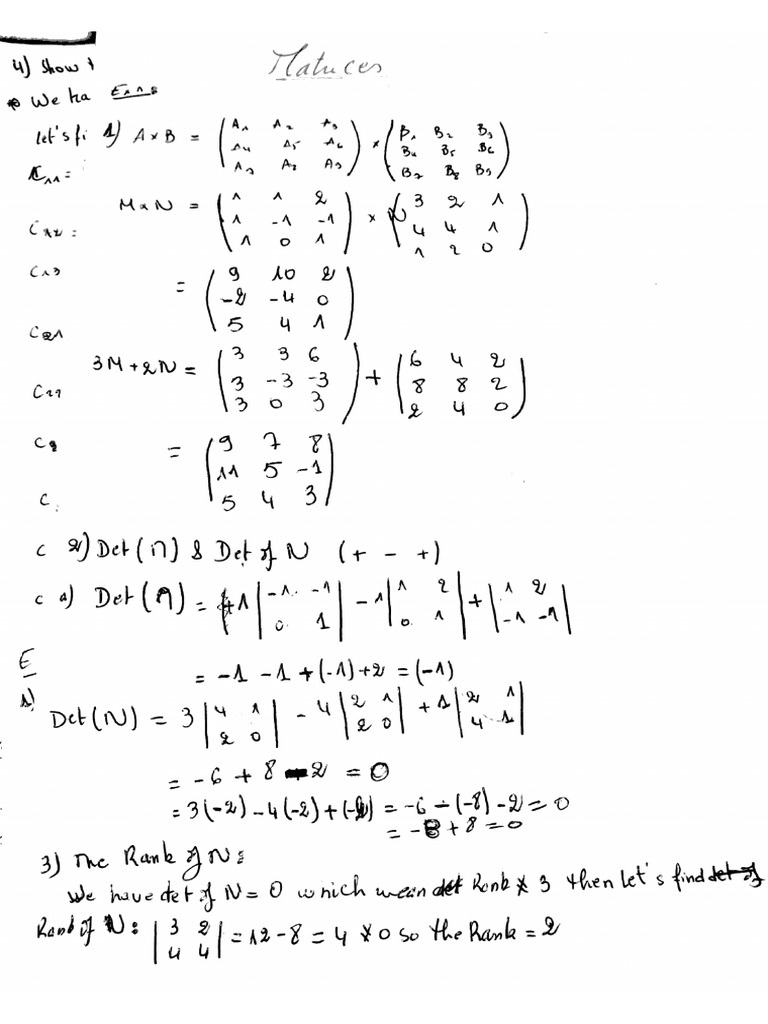 Matrices
4) Show
We ha Exn 8
let's fi 1) A×B = (A₁ A₂ A₃ / A₄ A₅ A₆ / A₇ A₈ A₉) × (B₁ B₂ B₃ / B₄ B₅ B₆ / B₇ B₈ B₉)
C₁₁ =
M×N = (1 1 2 / 1 -1 -1 / 1 0 1) × (3 2 1 / 4 4 1 / 1 2 0)
C₁₂ =
C₁₃
= (9 10 2 / -2 -4 0 / 5 4 1)
C₂₁
3M+2N = (3 3 6 / 3 -3 -3 / 3 0 3) + (6 4 2 / 8 8 2 / 2 4 0)
C₂₂
C₂
= (9 7 8 / 11 5 -1 / 5 4 3)
C
C 2) Det(M) & Det of N (+ - +)
C a) Det(M) = +1 |-1 -1 / 0 1| - 1 |1 2 / 0 1| + |1 2 / -1 -1|
E
= -1 -1 + (-1) + 2 = (-1)
1)
Det(N) = 3 |4 1 / 2 0| - 4 |2 1 / 2 0| + 1 |2 1 / 4 1|
= -6 + 8 - 2 = 0
= 3(-2) - 4(-2) + (-2) = -6 - (-8) - 2 = 0
= -8 + 8 = 0
3) The Rank of N:
We have det of N = 0 which mean Rank ≠ 3 then let's find
Rank of N: |3 2 / 4 4| = 12 - 8 = 4 ≠ 0 so the Rank = 2